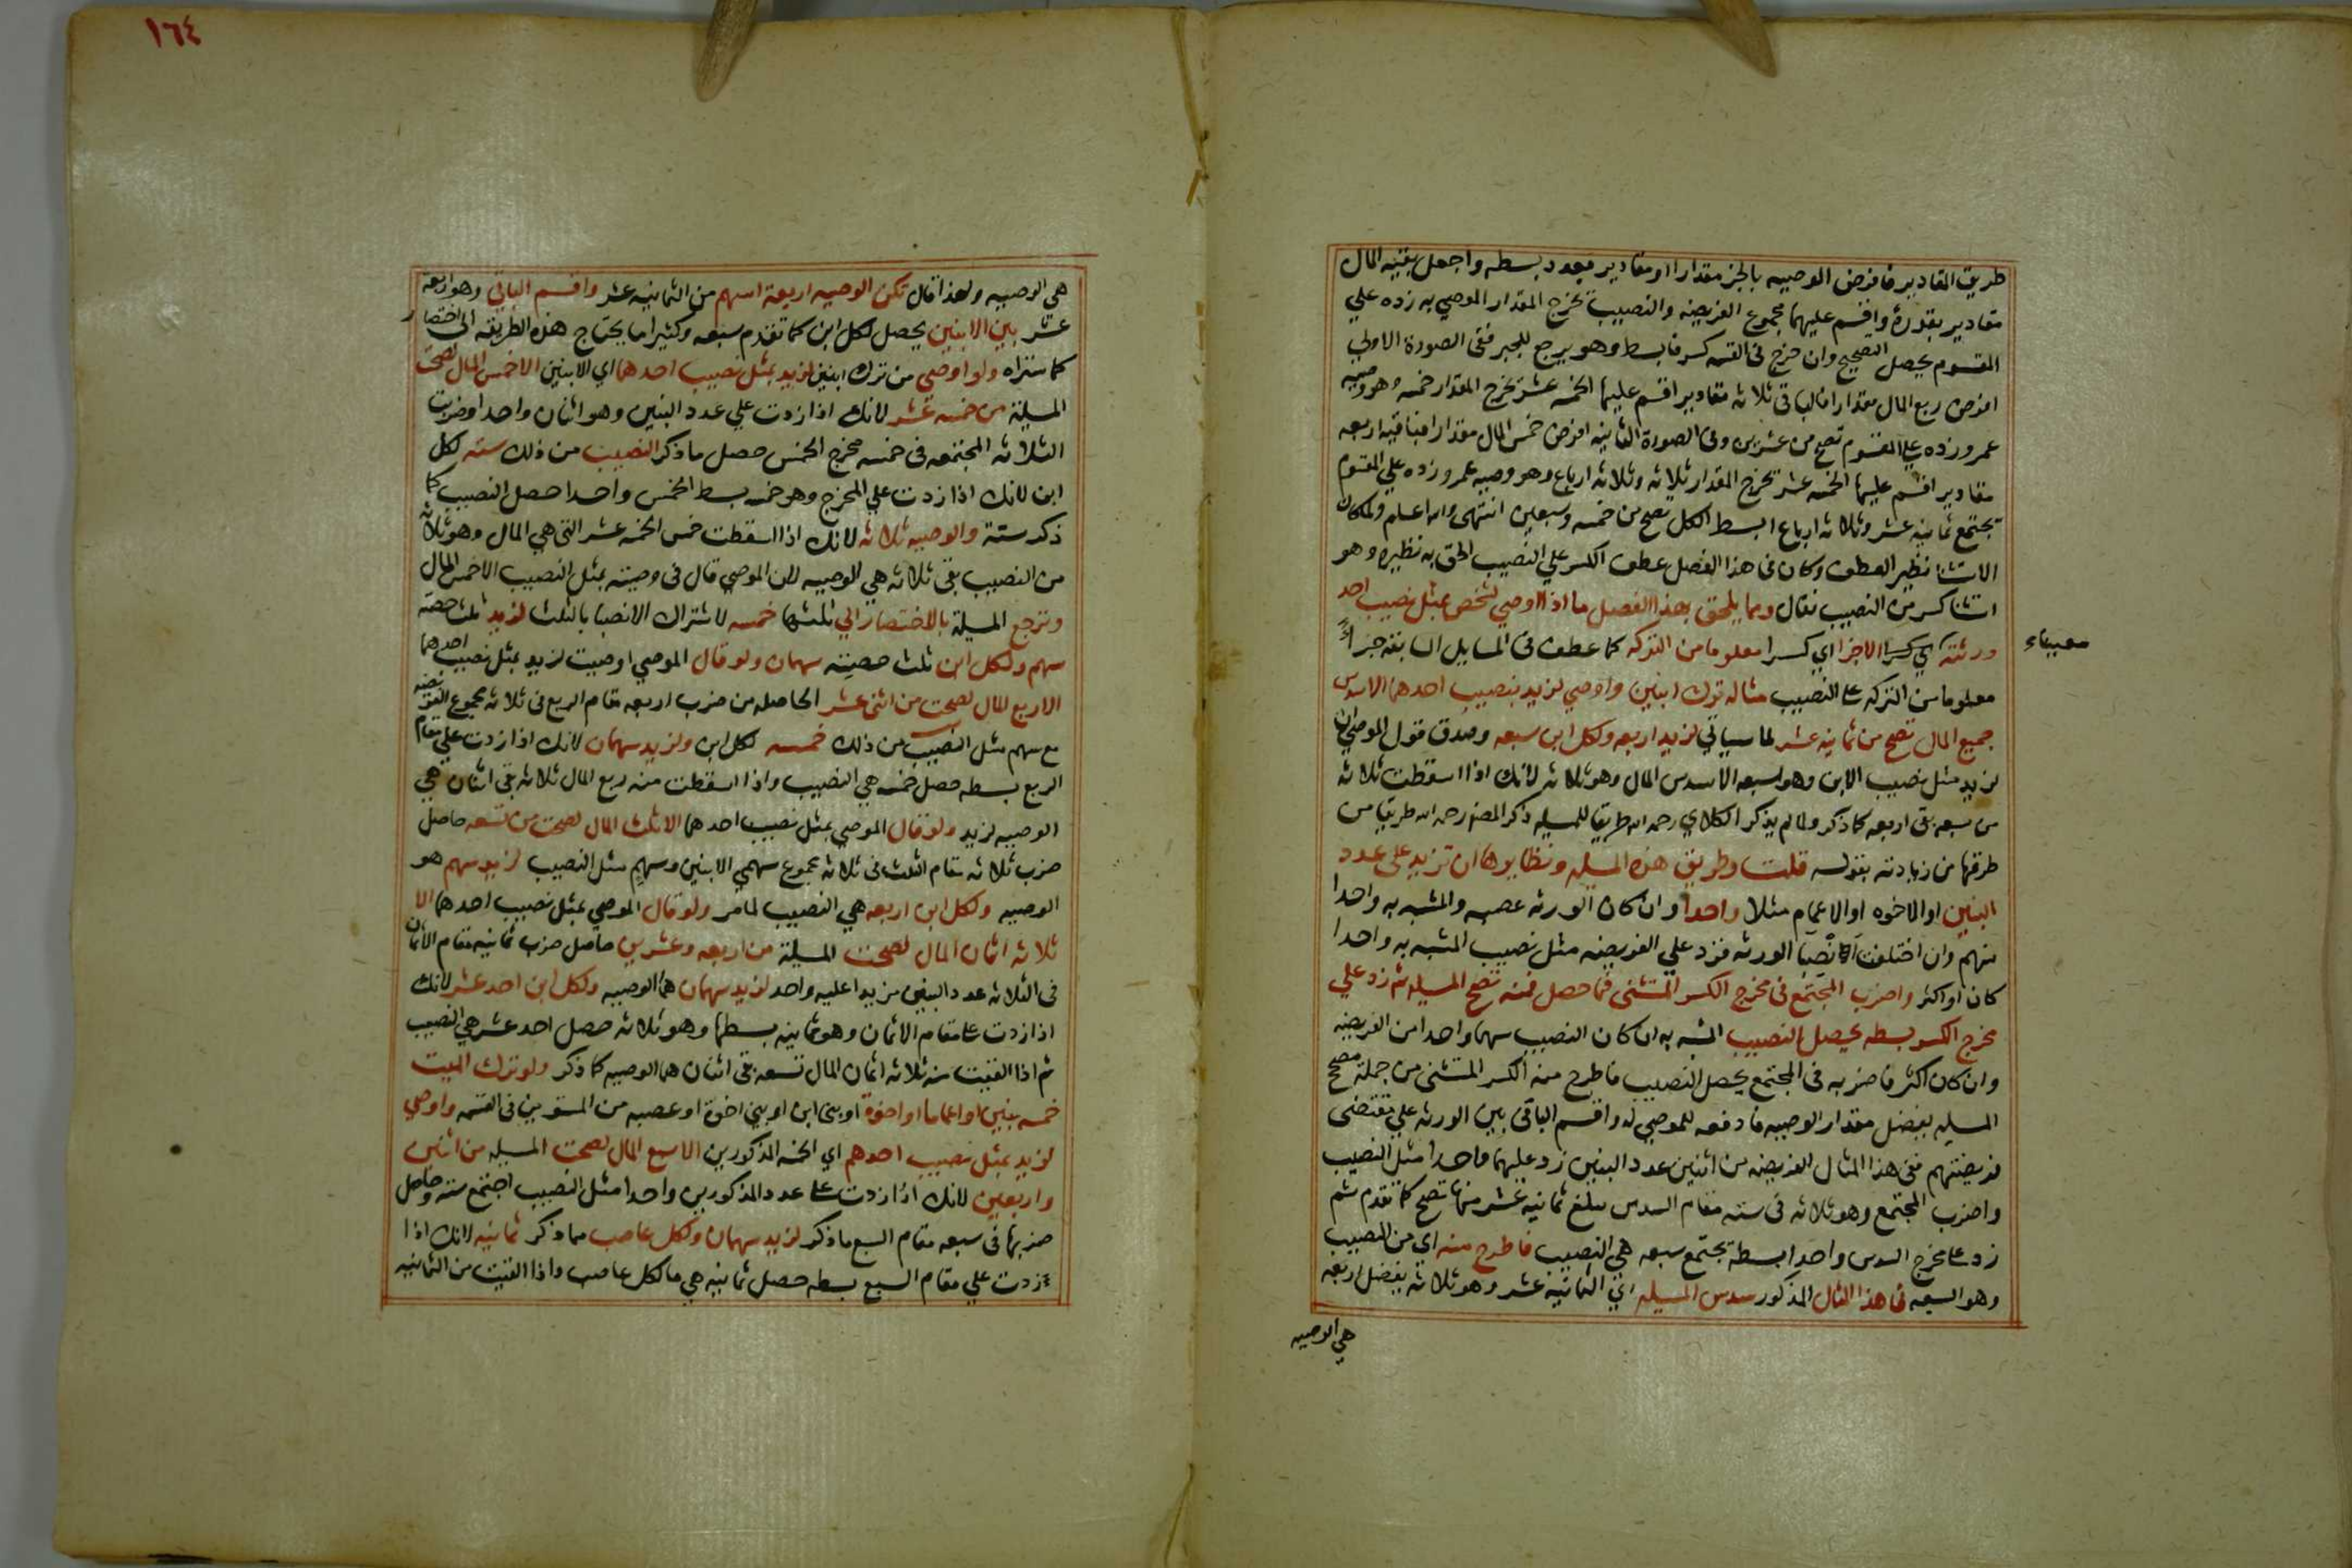 طريق المقادير فافرض الوصيه بالجز مقدارا او مقادير بعدد بسطه واجعل بقيه المال
مقادير بقدره واقسم عليهما مجموع الفريضه والنصيب يخرج المقدار الموصي به زده علي
المقسوم يحصل التصحيح وان خرج في القسمه كسر فابسط وهو يرجع للجبر ففي الصورة الاولي
افرض ربع المال مقدارا فالباقي ثلاثه مقادير اقسم عليها الخمسه عشر يخرج المقدار خمسه وهو وصيه
عمرو زده علي المقسوم تصح من عشرين وفي الصورة الثانيه افرض خمس المال مقدارا فباقيه اربعه
مقادير اقسم عليها الخمسه عشر يخرج المقدار ثلاثه وثلاثه ارباع وهو وصيه عمرو زده علي المقسوم
تجتمع ثمانيه عشر وثلاثه ارباع ابسط الكل تصح من خمسه وسبعين انتهى والله اعلم ولما كان
الاستثنا نظير العطف وكان في هذا الفصل عطف الكسر علي النصيب الحق به نظيره وهو
استثنا كسر من النصيب فقال ومما يلحق بهذا الفصل ما اذا اوصي لشخص بمثل نصيب احد
ورثته الاجزا اي كسرا معلوما من التركه كما عطف في المسايل السابقه جزاءً
معيناء
معلوما من التركه على النصيب مثاله ترك ابنين واوصي لزيد بنصيب احدهما الا سدس
جميع المال تصح من ثمانيه عشر لما سياتي لزيد اربعه ولكل ابن سبعه وصدق قول الموصي ان
لزيد مثل نصيب الابن وهو سبعه الا سدس المال وهو ثلاثه لانك اذا اسقطت ثلاثه
من سبعه بقي اربعه كما ذكر ولما لم يذكر الكلاي رحمه الله طريقا للمسيله ذكر المصنف رحمه الله طريقا من
طرقها من زيادته بقوله قلت وطريق هذه المسيله ونظايرها ان تزيد على عدد
البنين او الاخوه او الاعمام مثلا واحدا وان كان الورثه عصبه والمشبه به واحدا
منهم وان اختلفت انصبا الورثه فزد علي الفريضه مثل نصيب المشبه به واحدا
كان او اكثر واضرب المجتمع في مخرج الكسر المستثنى فما حصل فمنه تصح المسيله ثم زد علي
مخرج الكسر بسطه يحصل النصيب المشبه به ان كان النصيب سهما واحدا من الفريضه
وان كان اكثر فاضربه في المجتمع يحصل النصيب فاطرح منه الكسر المستثنى من جملة مصحح
المسيله يفضل مقدار الوصيه فادفعه للموصي له واقسم الباقي بين الورثه علي مقتضى
فريضتهم ففي هذا المثال الفريضه من اثنين عدد البنين زد عليهما واحدا مثل النصيب
واضرب المجتمع وهو ثلاثه في سته مقام السدس يبلغ ثمانيه عشر منها تصح كما تقدم ثم
زد على مخرج السدس واحدا بسطه يجتمع سبعه هي النصيب فاطرح منه اي من النصيب
وهو السبعه في هذا المثال المذكور سدس المسيله اي الثمانيه عشر وهو ثلاثه يفضل اربعه
هي الوصيه
١٦٤
هي الوصيه ولهذا قال تكن الوصيه اربعة اسهم من الثمانيه عشر واقسم الباقي وهو اربعة
عشر بين الابنين يحصل لكل ابن كما تقدم سبعه وكثيرا ما يحتاج هذه الطريقه الى اختصار
كما ستراه ولو اوصي من ترك ابنين لزيد بمثل نصيب احدهما اي الابنين الا خمس المال لصحت
المسيلة من خمسه عشر لانك اذا زدت علي عدد البنين وهو اثنان واحدا وضربت
الثلاثه المجتمعه في خمسه مخرج الخمس حصل ما ذكر النصيب من ذلك سته لكل
ابن لانك اذا زدت علي المخرج وهو خمسه بسط الخمس واحدا حصل النصيب كما
ذكر ستة والوصيه ثلاثه لانك اذا اسقطت خمس الخمسه عشر التي هي المال وهو ثلاثه
من النصيب بقي ثلاثه هي الوصيه لان الموصي قال في وصيته بمثل النصيب الا خمس المال
وترجع المسيلة بالاختصار الي ثلثها خمسه لاشتراك الانصبا بالثلث لزيد ثلث حصته
سهم ولكل ابن ثلث حصيته سهمان ولو قال الموصي اوصيت لزيد بمثل نصيب احدهما
الا ربع المال لصحت من اثني عشر الحاصله من ضرب اربعه مقام الربع في ثلاثه مجموع الفريضه
مع سهم مثل النصيب من ذلك خمسه لكل ابن ولزيد سهمان لانك اذا زدت علي مقام
الربع بسطه حصل خمسه هي النصيب واذا اسقطت منه ربع المال ثلاثه بقي اثنان هي
الوصيه لزيد ولو قال الموصي بمثل نصيب احدهما الا ثلث المال لصحت من تسعه حاصل
ضرب ثلاثه مقام الثلث في ثلاثه مجموع سهمي الابنين وسهم مثل النصيب لزيد سهم هو
الوصيه ولكل ابن اربعه هي النصيب لما مر ولو قال الموصي بمثل نصيب احدهما الا
ثلاثه اثمان المال لصحت المسيلة من اربعه وعشرين حاصل ضرب ثمانيه مقام الاثمان
في الثلاثه عدد البنين مزيدا عليه واحد لزيد سهمان هما الوصيه ولكل ابن احد عشر لانك
اذا زدت على مقام الاثمان وهو ثمانيه بسطها وهو ثلاثه حصل احد عشر هي النصيب
ثم اذا القيت منه ثلاثه اثمان المال تسعه بقي اثنان هما الوصيه كما ذكر ولو ترك الميت
خمسه بنين او اعماما او اخوة او بني ابن او بني اخوة او عصبه من المستوين في القسمه واوصي
لزيد بمثل نصيب احدهم اي الخمسه المذكورين الا سبع المال لصحت المسيله من اثنين
واربعين لانك اذا زدت على عدد المذكورين واحدا مثل النصيب اجتمع سته وحاصل
ضربها في سبعه مقام السبع ما ذكر لزيد سهمان ولكل عاصب مما ذكر ثمانيه لانك اذا
زدت علي مقام السبع بسطه حصل ثمانيه هي ما لكل عاصب واذا القيت من الثمانيه